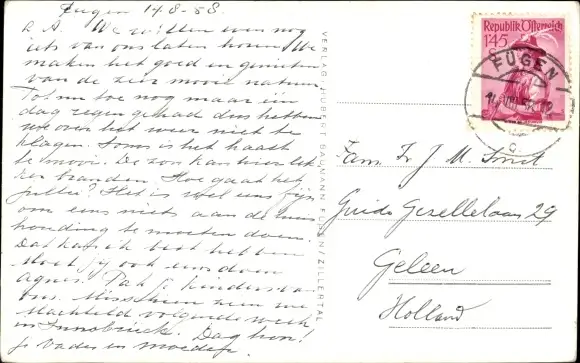 Fugen 14-8-58.
L A. We willen even nog
iets van ons laten horen. We
maken het goed en genieten
van de zeer mooie natuur.
Tot nu toe nog maar één
dag regen gehad dus hebben
we over het weer niet te
klagen. Soms is het haast
te mooi. De zon kan hier lek
ker branden. Hoe gaat het
jullie? Het is wel eens fijn
om eens niets aan de huis
houding te moeten doen.
Dat kan ik best hebben
moet jij ook eens doen
Agnes. Pak je kinders van
ons. Misschien zien we
Machteld volgende week
in Innsbruck. Dag hoor!
je vader en moeder.
VERLAG HUBERT BAUMANN FÜGEN/ZILLERTAL
Republik Österreich
1'45
FÜGEN
Fam. Fr J M. Smit
Guido Gezellelaan 29
Geleen
Holland